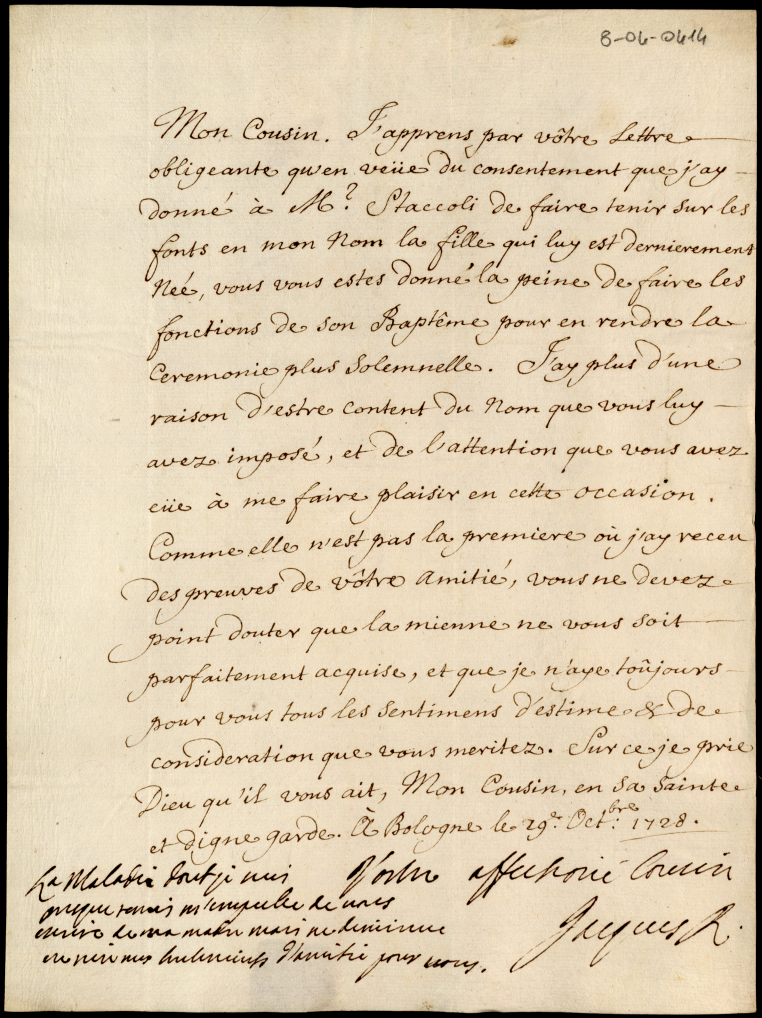 8-04-0414
Mon Cousin. J'apprens par vôtre Lettre
obligeante qu'en veüe du consentement que j'ay
donné à Mr. Staccoli de faire tenir sur les
fonts en mon Nom la fille qui luy est dernierement
Née, vous vous estes donné la peine de faire les
fonctions de son Baptême pour en rendre la
Ceremonie plus Solemnelle. J'ay plus d'une
raison d'estre Content du Nom que vous luy
avez imposé, et de l'attention que vous avez
eüe à me faire plaisir en cette occasion.
Comme elle n'est pas la premiere où j'ay receu
des preuves de vôtre Amitié, vous ne devez
point douter que la mienne ne vous soit
parfaitement acquise, et que je n'aye toûjours
pour vous tous les Sentimens d'estime & de
consideration que vous meritez. Sur ce je prie
Dieu qu'il vous ait, Mon Cousin, en sa Sainte
et digne garde. À Bologne le 29e. Octbre. 1728.
Vostre affectioné Cousin
Jacques R.
La Maladie dont je suis
presque remis m'empeche de vous
escrire de ma main mais ne diminue
en rien mes sentiments d'amitié pour vous.